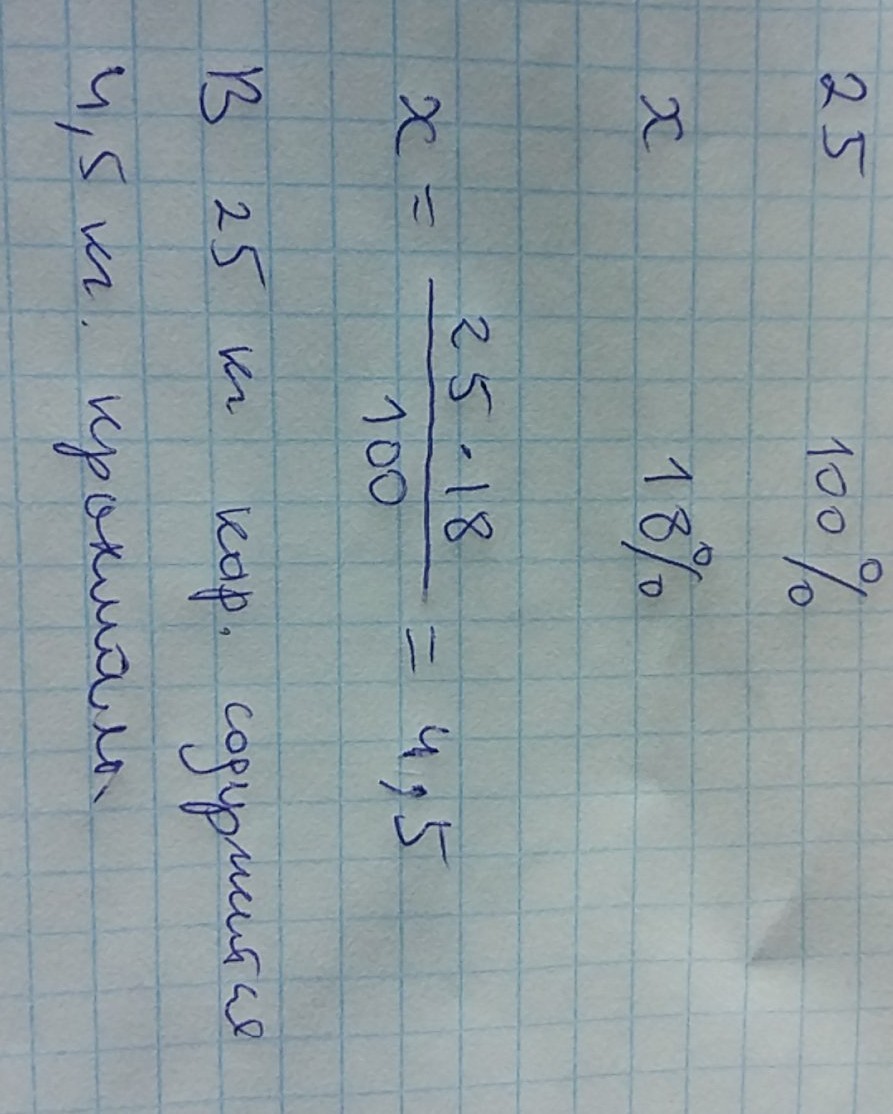 25 100%
x 18%
x = 25 · 18 / 100 = 4,5
В 25 кг кар. содержится
4,5 кг. крохмаль